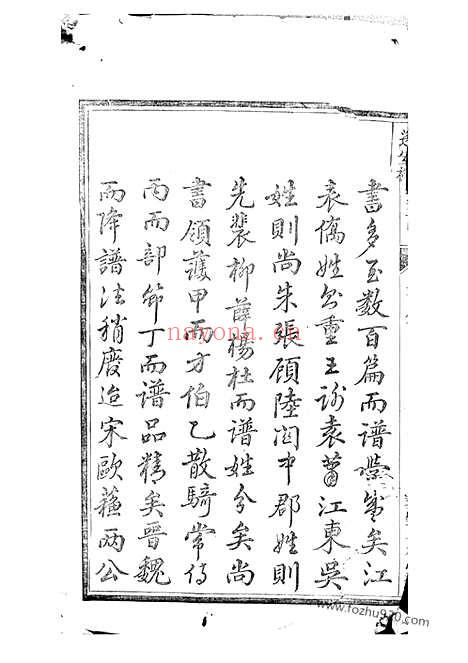 書多至數百篇而譜學盛矣江
表僑姓則重王謝袁蕭江東吳
姓則尚朱張顧陸関中郡姓則
先裴柳薛楊杜而譜姓分矣尚
書領護甲而方伯乙散騎常侍
丙而部節丁而譜品精矣晋魏
而降譜法稍廢迨宋歐蘓两公
nayona.cn
www.fozhu920.com